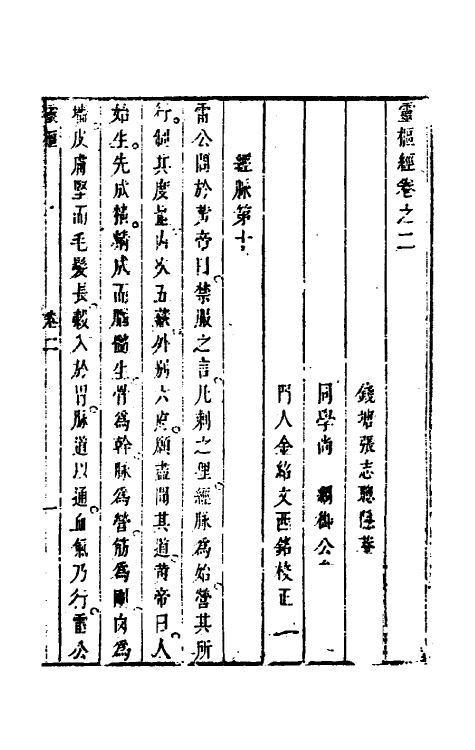 靈樞經卷之二
錢塘張志聰隱菴
同學尚 御公
門人金紹文西銘校正
經脈第十
雷公問於黃帝曰禁服之言凡刺之理經脈為始營其所
行制其度量內次五藏外別六府願盡聞其道黃帝曰人
始生先成精精成而腦髓生骨為幹脉為營筋為剛肉為
墻皮膚堅而毛髮長穀入於胃脉道以通血氣乃行雷公
靈樞 卷二 一